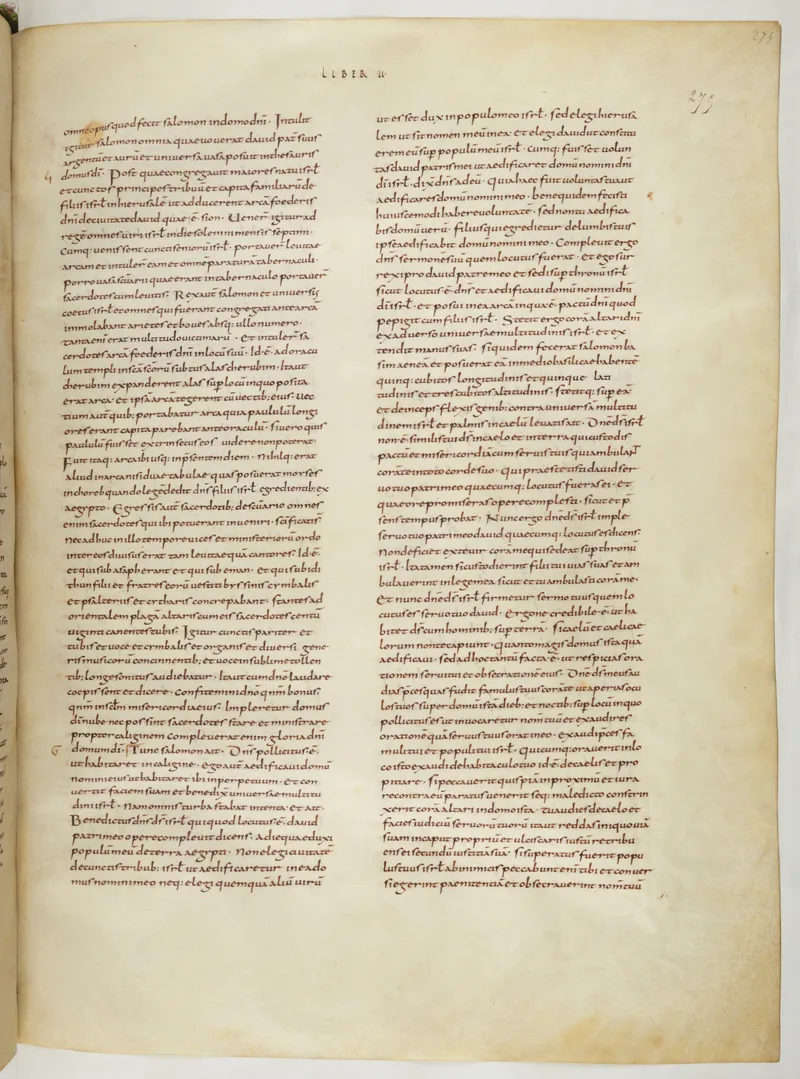 LIBER II
275
279
omne opus quod fecit salomon in domo dn̄i · Intulit
igitur salomon omnia quae uouerat dauid pat̄ suus
argentū et aurū et uniuersa uasa posuit in thesauris
domus dī · Post quae congregauit maiores natu isrł
et cunctos principes tribuū et capita familiarū de
filiis isrł in hierusalē ut adducerent arcā foederis
dn̄i de ciuitate dauid quae · ē · sion · Uener̄ igitur ad
regē omnes uiri isrł in die solemni mensis septimi ·
Cumq; uenissent cuncti seniorū isrł · portauer̄ leuitae
arcam et intuler̄ eam et omnē paraturā tabernaculi ·
porro uasa sc̄uarii quae erant in tabernaculo portauer̄
sacerdotes cum leuitis · Rex aut̄ salomon et uniuersus
coetus isrł et omnes qui fuerant congregati ante arcā
immolabant arietes et boues absq; ullo numero ·
tanta eni erat multitudo uictimarū · Et intuler̄ sa
cerdotes arcā foederis dn̄i in locū suū · Id · ē · ad oracu
lum templi in sc̄a sc̄orū subtus alas cherubim · Ita ut
cherubim expanderent alas sup̄ locū in quo posita
erat arca · et ipsā arcā tegerent cū uectib; eius · Uec
tium aut̄ quib; portabatur arca quia paululū longi
ores erant capita parebant ante oraculū · si uero quis
paululū fuisset extrinsecus eos uidere non poterat ·
Fuit itaq; arca ibi usq; in p̄sentem diem · Nihilq; erat
aliud in arca nisi duae tabulae quas posuerat moyses
in choreb quando legē dedit dn̄s filiis isrł egredientib; ex
aegypto · Egressis aut̄ sacerdotib; de sc̄uario omnes
enim sacerdotes qui ibi potuerant inueniri · sc̄ificati s̄
nec adhuc in illo tempore uices et ministeriorū ordo
inter eos diuisus erat tam leuitae quā cantores · Id · ē ·
et qui sub asaph erant et qui sub eman · et qui sub idi
thun filii et fratres eorū uestiti byssinis cymbalis
et psalteriis et cytharis concrepabant · stantes ad
orientalem plagā altaris cum eis sacerdotes centū
uiginti canentes tubis · Igitur cunctis pariter et
tubis et uoce et cymbalis et organis et diuersi gene
ris musicorū concinnentib; et uoce in sublime tollen
tib; longe sonitus audiebatur · Ita ut cum dn̄o laudare
coepissent et dicere · Confitemini dn̄o qn̄m bonus ·
qn̄m in sēcl̄m misericordia eius · Impleretur domus
dī nube nec possint sacerdotes stare et ministrare
propter caliginem Compleuerat enim gloria dn̄i
domum dī · Tunc salomon ait · Dn̄s pollicitus · ē ·
ut habitaret in caligine · ego aut̄ aedificaui domū
nomini eius ut habitaret ibi in perpetuum · Et con
uertit faciem suam et benedix̄ uniuersae multitu
dini isrł · Nam omnis turba stabat intenta · et ait ·
Benedictus dn̄s ds̄ isrł qui quod locutus · ē · dauid
patri meo opere compleuit dicens · A die qua eduxi
populū meū de terra aegypti · Non elegi ciuitatē
de cunctis tribub; isrł ut aedificaretur in ea do
mus nomini meo neq; elegi quemquā aliū uirū
ut esset dux in populo meo isrł · sed elegi hierusa
lem ut sit nomen meū in ea · et elegi dauid ut constitu
erem eū sup̄ populū meū isrł · Cumq; fuisset uolun
tas dauid patris mei ut aedificaret domū nomini dn̄i
dī isrł · dix̄ dn̄s ad eū · Quia haec fuit uoluntas tua ut
aedificares domū nomini meo · bene quidem fecisti
huiuscemodi habere uoluntatē · sed non tu aedifica
bis domū uerū · filius qui egredietur de lumbis tuis
ipse aedificabit domū nomini meo · Compleuit ergo
dn̄s sermonē suū quem locutus fuerat · et ego sur
rexi pro dauid patre meo et sedi sup̄ thronū isrł
sicut locutus · ē · dn̄s · et aedificaui domū nomini dn̄i
dī isrł · et posui in ea arcā in qua · ē · pactū dn̄i quod
pepigit cum filiis isrł · Stetit ergo corā altari dn̄i
ex aduerso uniuersae multitudinis isrł · et ex
tendit manus suas · siquidem fecerat salomon ba
sim aeneā et posuerat eā in medio basilicae habentē
quinq; cubitos longitudinis et quinque lati
tudinis et tres cubitos altitudinis · stetitq; sup̄ eā ·
et deinceps flexis genib; contra uniuersā multitu
dinem isrł et palmis in caelū leuatis ait · Dn̄e ds̄ isrł ·
non · ē · similis tui ds̄ in caelo et in terra qui custodis
pactū et misericordiā cum seruis tuis qui ambulant
corā te in toto corde suo · Qui praestitisti dauid ser
uo tuo patri meo quaecumq; locutus fueras ei · et
quae ore promiseras opere complesti · sicut et p̄
sens tempus probat · Nunc ergo dn̄e ds̄ isrł imple
seruo tuo patri meo dauid quaecumq; locutus es dicens ·
Non deficiet ex te uir corā me qui sedeat sup̄ thronū
isrł · Ita tamen si custodierint filii tui uias suas et am
bulauerint in lege mea sicut et tu ambulasti corā me ·
Et nunc dn̄e ds̄ isrł firmetur sermo tuus quem lo
cutus es seruo tuo dauid · Ergone credibile · ē · ut ha
bitet ds̄ cum hominib; sup̄ terrā · si caelū et caeli cae
lorum non te capiunt · quanto magis domus ista quā
aedificaui · sed ad hoc tantū facta · ē · ut respicias ora
tionem serui tui et obsecrationē eius · Dn̄e ds̄ meus au
dias p̄ces quas fudit famulus tuus corā te ut aperias ocu
los tuos super domū istā dieb; et noctib; sup̄ locū in quo
pollicitus es ut inuocaretur nom̄ tuū et exaudires
orationē quā seruus tuus orat in eo · exaudi p̄ces fa
muli tui et populi tui isrł · Quicumq; orauerit in lo
co isto exaudi de habitaculo tuo id · ē · de caelis et pro
pitiare · si peccauerit quispiā in proximū et iura
re contra eū paratus uenerit seq; maledicto constrin
xerit corā altari in domo ista · tu audies de caelo et
facies iudiciū seruorū tuorū ita ut reddas iniquo uiā
suam in caput propriū et ulciscaris iustū retribu
ens ei secundū iustitiā suā · si superatus fuerit popu
lus tuus isrł ab inimicis peccabunt eni tibi et conuer
si egerint paenitentiā et obsecrauerint nom̄ tuū